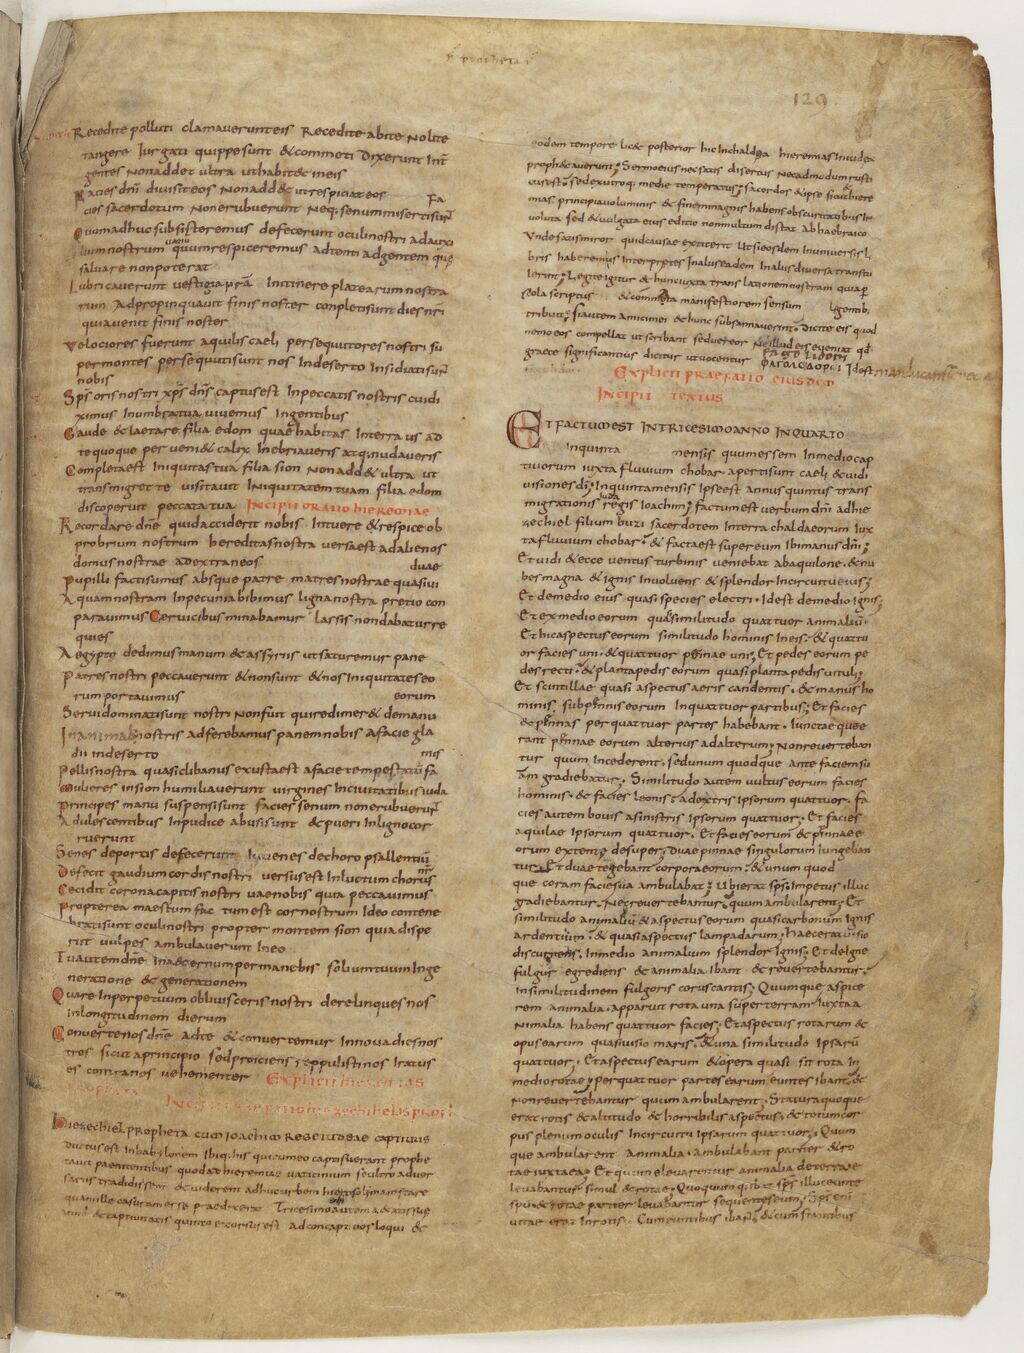 propheta
129
Recedite polluti clamaverunt eis Recedite abite Nolite
tangere Iurgati quippe sunt & commoti Dixerunt Int̄
gentes Non add& ultra ut habit& in eis
Facies dn̄i divisit eos Non add& ut respiciat eos Fa
cies sacerdotum Non erubuerunt Neq; senum misertisunt
Quom adhuc subsisteremus defecerunt oculi nostri ad auxi
lium nostrum vanum quum respiceremus adtenti ad gentem que
salvare non poterat
Lubricaverunt vestigia nr̄a Initinere platearum nostra
rum Adpropinquavit finis noster completi sunt dies nr̄i
quia venit finis noster
Velociores fuerunt aquilis caeli persequutores nostri su
per montes persequuti sunt nos Indeserto Insidiati sunt
nobis
Sps̄ oris nostri xps̄ dn̄s captus est Inpeccatis nostris cui di
ximus Inumbra tua vivemus Ingentibus
Gaude & laetare filia edom quae habitas Interra us ad
te quoque perveni& calix Inebriaveris atq; nudaveris
Completa est Iniquitas tua filia sion Non add& ultra ut
transmigret te visitavit Iniquitatem tuam filia edom
discoperuit peccata tua Incipit oratio hieremiae
Recordare dn̄e quid acciderit nobis Intuere & respice ob
probrium nostrum hereditas nostra versa est ad alienos
domus nostrae ad extraneos duae
Pupilli facti sumus absque patre matres nostrae quasi vi
Aquam nostram Inpecunia bibimus ligna nostra pretio con
paravimus Cervicibus minabamur lassis non dabatur re
quies
Aegypto dedimus manum & assyriis ut saturemur pane
Patres nostri peccaverunt & non sunt & nos Iniquitates eo
rum portavimus eorum
Servi dominati sunt nostri Non fuit qui redimer& de manu
Inanimab; nostris adferebamus panem nobis a facie gla
dii in deserto mis
Pellis nostra quasi clibanus exusta est a facie tempestatū fa
Mulieres insion humiliaverunt virgines Incivitatibus iuda
Principes manu suspensi sunt facies senum non erubuerunt
Adulescentibus Inpudice abusi sunt & pueri Inligno cor
ruerunt
Senes de portis defecerunt Iuvenes de choro psallentiū
Defecit gaudium cordis nostri versus est Inluctum chorus nr̄
Cecidit corona capitis nostri vae nobis quia peccavimus
Propterea maestum factum est cor nostrum Ideo contene
brati sunt oculi nostri propter montem sion quia dispe
riit vulpes ambulaverunt Ineo
Tu autem dn̄e Inaeternum permanebis solium tuum Inge
neratione & generationem
Quare Inperpetuum oblivisceris nostri derelinques nos
Inlongitudinem dierum
Converte nos dn̄e ad te & convertemur Innova dies nos
tros sicut a principio sed proiciens reppulisti nos Iratus
es contra nos vehementer Explicit hieremias
propheta
Hiezechiel propheta cum Ioachim rege iudae captivus
ductus est Inbabylonem Ibiq; his qui cum eo capti fuerant prophe
tavit paenitentibus quod ad hieremiae vaticinium se ultro adver
sariis tradidissent & viderent adhuc urbem hierosolimam stare
quam ille casuram esse praedixerat Tricesimo autem aetatis suae
anno & captivitatis quinto exorsus est ad concaptivos loqui &
eodem tempore lic& posterior hic Inchaldea hieremias Iniudea
prophetaverunt; Sermo eius nec satis disertus Nec admodum rusti
cus est; sed ex utroq; medie temperatus; sacerdos & ipse sicut hiere
mias principia voluminis & finem magnis habens obscuritatibus In
voluta sed & vulgata eius editio non multum distat ab hebraico
Unde satis miror quid causae extiterit Ut si eosdem Inuniversis li
bris haberemus Interpretes Inaliis eadem Inaliis diversa transtu
lerint; Legite igitur & hunc iuxta translationem nostram quia per
cola scriptus & commata manifestiorem sensum legentib;
tribuit; si autem amici mei & hunc subsannaverint Dicite eis quod
nemo eos compellat ut scribant sed vereor Ne illud eis eveniat qđ
graece significantius dicitur ut vocentur
ΦΑΓΟΛΟΔΟΡΟΙ Idest manducantes
Explicit praefatio eiusdem
Incipit textus
Et factum est Intricesimo anno Inquarto
Inquinta mensis quum essem Inmedio cap
tivorum iuxta fluvium chobar aperti sunt caeli & vidi
visiones dī; Inquinta mensis Ipse est annus quintus trans
migrationis regis Ioachim iuda; factum est verbum dn̄i ad hie
zechiel filium buzi sacerdotem Interra chaldaeorum Iux
ta fluvium chobar; & facta est super eum Ibi manus dn̄i;
Et vidi & ecce ventus turbinis veniebat ab aquilone & nu
bes magna & Ignis Involvens & splendor Incircuitu eius;
Et de medio eius quasi species electri Idest de medio Ignis;
Et ex medio eorum quasi similitudo quattuor animaliū
Et hic aspectus eorum similitudo hominis Ineis & quattu
or facies uni & quattuor pinnae uni; Et pedes eorum pe
des recti & planta pedis eorum quasi planta pedis vituli;
Et scintillae quasi aspectus aeris candentis & manus ho
minis sub pinnis eorum Inquattuor partibus; Et facies
& pinnas per quattuor partes habebant Iunctaeque e
rant pinnae eorum alterius ad alterum; Non reverteban
tur quum Incederent sed unum quodque ante faciem su
am gradiebatur; Similitudo autem vultus eorum facies
hominis & facies leonis a dextris Ipsorum quattuor fa
cies autem bovis a sinistris Ipsorum quattuor; Et facies
aquilae Ipsorum quattuor Et facies eorum & pinnae e
orum extentae desuper; Duae pinnae singulorum Iungeban
tur Et duae tegebant corpora eorum & unum quod
que coram facie sua ambulabat; Ubi erat sps̄ Impetus illuc
gradiebantur Nec revertebantur quum ambularent; Et
similitudo animaliū & aspectus eorum quasi carbonum Ignis
ardentium & quasi aspectus lampadarum Haec erat visio
discurrens Inmedio animalium splendor Ignis; Et de Igne
fulgur egrediens & animalia Ibant & revertebantur;
Insimilitudinem fulgoris coruscantis; Quumque aspice
rem animalia apparuit rota una super terram Iuxta a
nimalia habens quattuor facies; Et aspectus rotarum &
opus earum quasi visio maris & una similitudo Ipsarū
quattuor; Et aspectus earum & opera quasi sit rota In
medio rotae; per quattuor partes earum euntes Ibant; &
Non revertebantur quum ambularent; Statura quoque
erat rotis & altitudo & horribilis aspectus; & totum cor
pus plenum oculis Incircuitu Ipsarum quattuor; Quum
que ambularent Animalia ambulabant pariter & ro
tae iuxta ea; Et quum elevarentur animalia de terra e
levabantur simul & rotae; Quoquumq; ibat sps̄ illuc eunte
spū & rotae pariter levabantur sequentes eum; Sps̄ enī
vitae erat Inrotis Cum euntibus ibant & cum stantibus